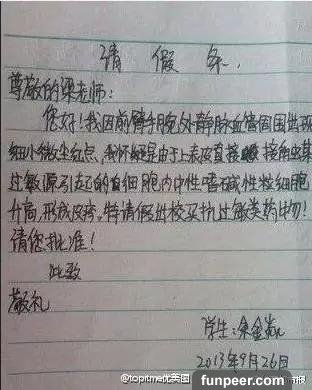 请假条
尊敬的梁老师:
您好!我因前臂手腕外静脉血管周围出现
细小微尘红点,我怀疑是由于上表皮直接接触某
过敏源引起的白细胞内中性嗜碱性粒细胞
升高,形成皮疹。特请假出校买抗过敏类药物!
请您批准!
此致
敬礼
学生:余金
2013年9月26日
@topitme优美图
funpeer.com